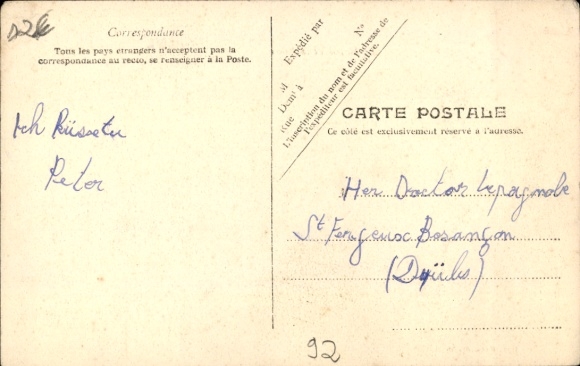 D26
Correspondance
Tous les pays etrangers n'acceptent pas la
correspondance au recto, se renseigner à la Poste.
Ich Küsse tu
Peter
Expédié par
Demt à
Rue
No
L'inscription du nom et de l'adresse de
l'expéditeur est facultative.
CARTE POSTALE
Ce côté est exclusivement réservé à l'adresse.
Herr Doctor Lepagnole
St Fergeux Besançon
(Doubs)
92